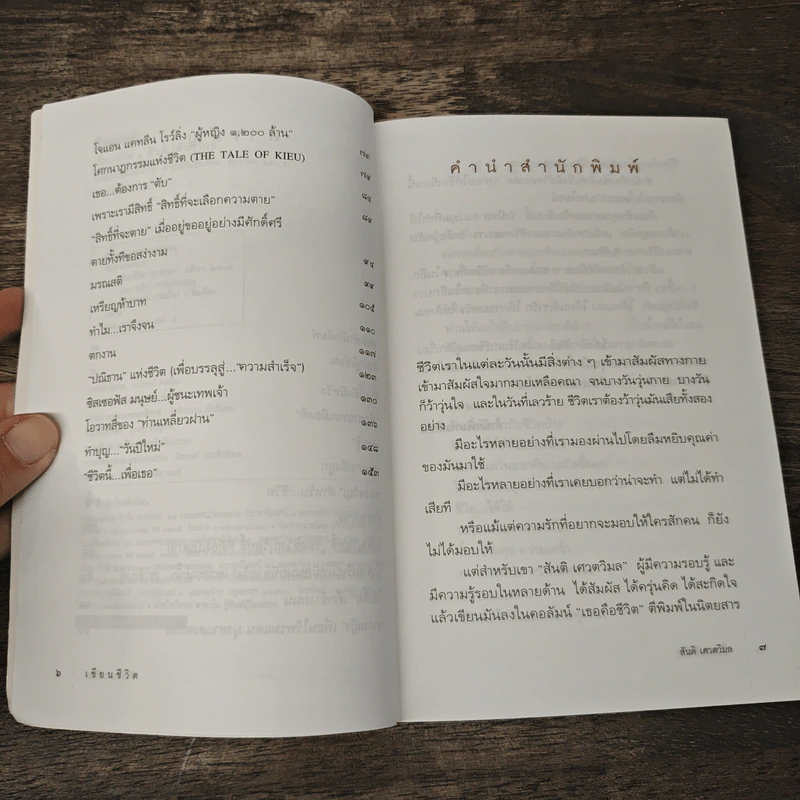 โจแอน แคทลีน โรว์ลิ่ง "ผู้หญิง ๑,๒๐๐ ล้าน" ๗๑
โศกนาฏกรรมแห่งชีวิต (THE TALE OF KIEU) ๗๘
เธอ...ต้องการ "ตับ" ๘๔
เพราะเรามีสิทธิ์ "สิทธิ์ที่จะเลือกความตาย" ๘๙
"สิทธิ์ที่จะตาย" เมื่ออยู่ขออยู่อย่างมีศักดิ์ศรี
ตายทั้งทีขอสง่างาม ๙๔
มรณสติ ๙๙
เหรียญห้าบาท ๑๐๕
ทำไม...เราจึงจน ๑๑๐
ตกงาน ๑๑๗
"ปณิธาน" แห่งชีวิต (เพื่อบรรลุสู่..."ความสำเร็จ") ๑๒๓
ซิสเซอฟัส มนุษย์...ผู้ชนะเทพเจ้า ๑๓๐
โอวาทสี่ของ "ท่านเหลี่ยวฝาน" ๑๓๖
ทำบุญ..."วันปีใหม่" ๑๔๘
"ชีวิตนี้...เพื่อเธอ" ๑๕๓
๖ เขียนชีวิต
คำนำสำนักพิมพ์
ชีวิตเราในแต่ละวันนั้นมีสิ่งต่าง ๆ เข้ามาสัมผัสทางกาย
เข้ามาสัมผัสใจมากมายเหลือคณา จนบางวันวุ่นกาย บางวัน
ก็ว้าวุ่นใจ และในวันที่เลวร้าย ชีวิตเราต้องว้าวุ่นมันเสียทั้งสอง
อย่าง
มีอะไรหลายอย่างที่เรามองผ่านไปโดยลืมหยิบคุณค่า
ของมันมาใช้
มีอะไรหลายอย่างที่เราเคยบอกว่าน่าจะทำ แต่ไม่ได้ทำ
เสียที
หรือแม้แต่ความรักที่อยากจะมอบให้ใครสักคน ก็ยัง
ไม่ได้มอบให้
แต่สำหรับเขา "สันติ เศวตวิมล" ผู้มีความรอบรู้ และ
มีความรู้รอบในหลายด้าน ได้สัมผัส ได้ครุ่นคิด ได้สะกิดใจ
แล้วเขียนมันลงในคอลัมน์ "เธอคือชีวิต" ตีพิมพ์ในนิตยสาร
สันติ เศวตวิมล ๗